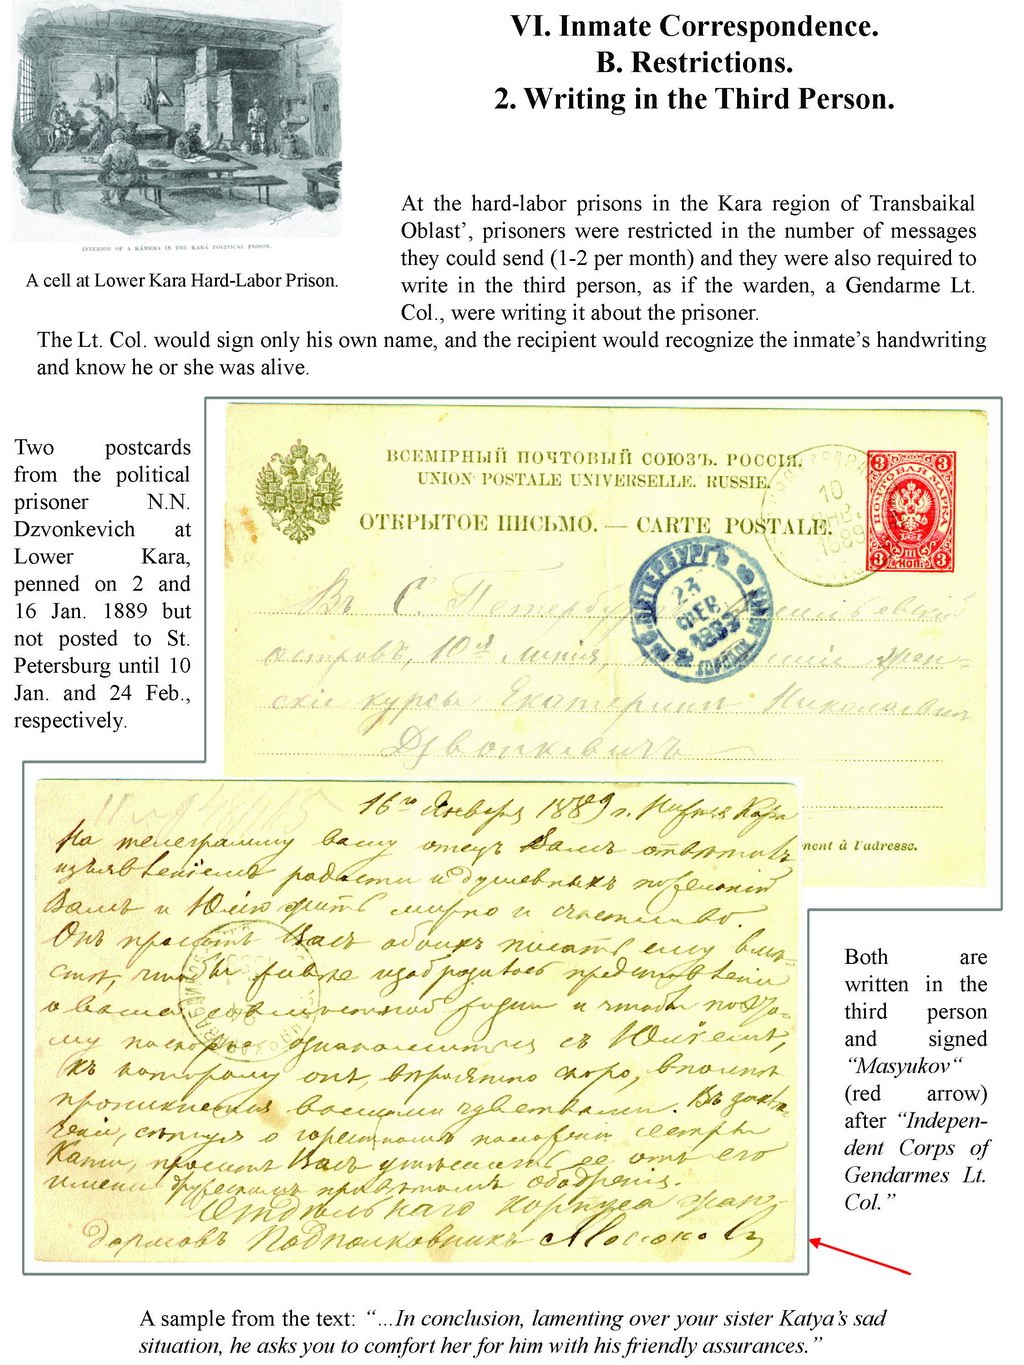 VI. Inmate Correspondence.
B. Restrictions.
2. Writing in the Third Person.
INTERIOR OF A KÁMERA IN THE KARÁ POLITICAL PRISON.
A cell at Lower Kara Hard-Labor Prison.
At the hard-labor prisons in the Kara region of Transbaikal
Oblast’, prisoners were restricted in the number of messages
they could send (1-2 per month) and they were also required to
write in the third person, as if the warden, a Gendarme Lt.
Col., were writing it about the prisoner.
The Lt. Col. would sign only his own name, and the recipient would recognize the inmate’s handwriting
and know he or she was alive.
Two postcards
from the political
prisoner N.N.
Dzvonkevich at
Lower Kara,
penned on 2 and
16 Jan. 1889 but
not posted to St.
Petersburg until 10
Jan. and 24 Feb.,
respectively.
ВСЕМІРНЫЙ ПОЧТОВЫЙ СОЮЗЪ. РОССІЯ.
UNION POSTALE UNIVERSELLE. RUSSIE.
ОТКРЫТОЕ ПИСЬМО. — CARTE POSTALE.
3 ПОЧТОВАЯ МАРКА 3
3 III КОП. 3
10
1889
С.ПЕТЕРБУРГЪ
23
ФЕВ.
1889
Въ С. Петербургъ
островъ, 10я линія, жен-
скіе курсы Екатеринѣ Николаевнѣ
Дзвонкевичъ
ment à l'adresse.
16го Января 1889 г. Нижняя Кара
На телеграмму вашу отецъ Вамъ отвѣтить
изъявленіемъ радости и душевныхъ пожеланій
Вамъ и Юлію жить мирно и счастливо.
Онъ проситъ Васъ обоихъ писать ему вмѣ-
стѣ, чтобы
о вашей совместной жизни и чтобы
му поскорѣе ознакомиться съ Юліемъ,
къ которому онъ, вѣроятно скоро, вполнѣ
проникнется вашими чувствами. Въ заклю-
ченіи, о горестномъ положеніи сестры
Кати, проситъ Васъ утѣшать ее отъ его
имени дружескимъ привѣтомъ ободренія.
Отдѣльнаго Корпуса Жан-
дармовъ Подполковникъ Масюковъ
Both are
written in the
third person
and signed
“Masyukov“
(red arrow)
after “Indepen-
dent Corps of
Gendarmes Lt.
Col.”
A sample from the text: “…In conclusion, lamenting over your sister Katya’s sad
situation, he asks you to comfort her for him with his friendly assurances.”